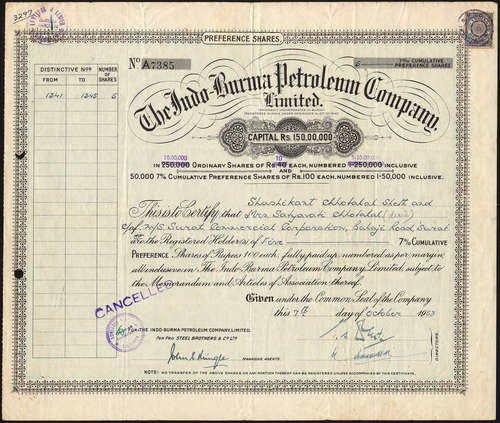 3297
PREFERENCE SHARES.
No A7385
7% CUMULATIVE
PREFERENCE SHARES
DISTINCTIVE Nos
NUMBER OF SHARES
FROM
TO
1241
1245
5
The Indo-Burma Petroleum Company,
Limited.
CAPITAL RS. 150,00,000
10,00,000 10 1-10,00,000
IN 250,000 ORDINARY SHARES OF RS. 40 EACH, NUMBERED 1-250,000 INCLUSIVE
AND
50,000 7% CUMULATIVE PREFERENCE SHARES OF RS. 100 EACH, NUMBERED 1-50,000 INCLUSIVE.
This is to Certify that Shashikant Chhotalal Shah and
Mrs. Chhotalal
c/o. M/s Surat Commercial Corporation, Road, Surat
are the Registered Holder(s) of Five 7% CUMULATIVE
PREFERENCE Shares of Rupees 100 each, fully paid up, numbered as per margin,
all inclusive in THE INDO-BURMA PETROLEUM COMPANY, LIMITED, subject to
the Memorandum and Articles of Association thereof.
CANCELLED
Given under the Common Seal of the Company
this 7th day of October 1963
FOR THE INDO-BURMA PETROLEUM COMPANY, LIMITED.
PER PRO STEEL BROTHERS & CO. LTD
MANAGING AGENTS.
DIRECTORS.
NOTE: NO TRANSFER OF THE ABOVE SHARES OR ANY PORTION THEREOF CAN BE REGISTERED UNLESS ACCOMPANIED BY THIS CERTIFICATE.